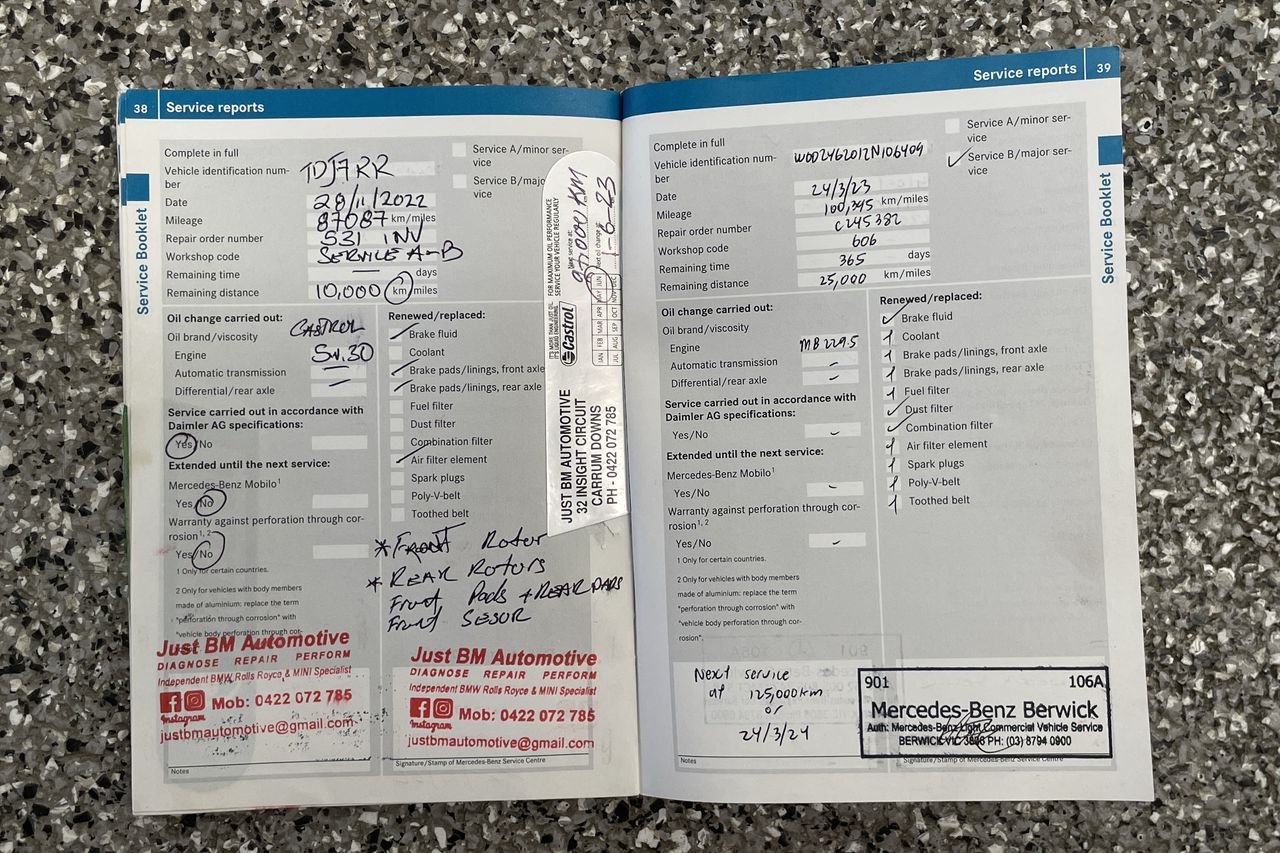 38 Service reports
Complete in full
Service A/minor ser-
vice
Vehicle identification num-
ber
1DJ7RR
Service B/majo
vice
Date 28/11/2022
Mileage 87087 km/miles
Repair order number 531 INV
Workshop code SERVICE A-B
Remaining time — days
Remaining distance 10,000 km/miles
Oil change carried out:
Oil brand/viscosity CASTROL
Engine 5W.30
Automatic transmission
Differential/rear axle
Service carried out in accordance with
Daimler AG specifications:
Yes/No
Extended until the next service:
Mercedes-Benz Mobilo1
Yes/No
Warranty against perforation through cor-
rosion1, 2
Yes/No
1 Only for certain countries.
2 Only for vehicles with body members
made of aluminium: replace the term
"perforation through corrosion" with
"vehicle body perforation through cor-
Renewed/replaced:
Brake fluid
Coolant
Brake pads/linings, front axle
Brake pads/linings, rear axle
Fuel filter
Dust filter
Combination filter
Air filter element
Spark plugs
Poly-V-belt
Toothed belt
* Front Rotor
* REAR Rotors
Front Pads + REAR PADS
Front SESOR
Just BM Automotive
DIAGNOSE REPAIR PERFORM
Independent BMW Rolls Royce & MINI Specialist
Mob: 0422 072 785
Instagram
justbmautomotive@gmail.com
Notes
Just BM Automotive
DIAGNOSE REPAIR PERFORM
Independent BMW Rolls Royce & MINI Specialist
Mob: 0422 072 785
Instagram
justbmautomotive@gmail.com
Signature/Stamp of Mercedes-Benz Service Centre
Service Booklet
IT'S MORE THAN JUST OIL.
IT'S LIQUID ENGINEERING.
Castrol
FOR MAXIMUM OIL PERFORMANCE
SERVICE YOUR VEHICLE REGULARLY
Next service at:
97,000 KM
Next oil change at:
1-6-23
JAN FEB MAR APR MAY JUN
JUL AUG SEP OCT NOV DEC
JUST BM AUTOMOTIVE
32 INSIGHT CIRCUIT
CARRUM DOWNS
PH - 0422 072 785
Service reports 39
Complete in full
Service A/minor ser-
vice
Vehicle identification num-
ber
WDD2462012N106409
Service B/major ser-
vice
Date 24/3/23
Mileage 100,345 km/miles
Repair order number C245382
Workshop code 606
Remaining time 365 days
Remaining distance 25,000 km/miles
Oil change carried out:
Oil brand/viscosity
Engine MB 229.5
Automatic transmission -
Differential/rear axle -
Service carried out in accordance with
Daimler AG specifications:
Yes/No
Extended until the next service:
Mercedes-Benz Mobilo1
Yes/No
Warranty against perforation through cor-
rosion1, 2
Yes/No
1 Only for certain countries.
2 Only for vehicles with body members
made of aluminium: replace the term
"perforation through corrosion" with
"vehicle body perforation through cor-
rosion".
Renewed/replaced:
Brake fluid
Coolant
Brake pads/linings, front axle
Brake pads/linings, rear axle
Fuel filter
Dust filter
Combination filter
Air filter element
Spark plugs
Poly-V-belt
Toothed belt
Next service
at 125,000km
or
24/3/24
Notes
901 106A
Mercedes-Benz Berwick
Auth: Mercedes-Benz Light Commercial Vehicle Service
BERWICK VIC 3806 PH: (03) 8794 0900
Signature/Stamp of Mercedes-Benz Service Centre
Service Booklet